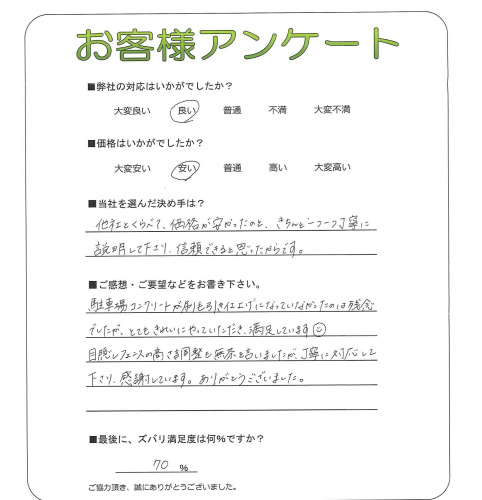 お客様アンケート
■弊社の対応はいかがでしたか？
大変良い 良い 普通 不満 大変不満
■価格はいかがでしたか？
大変安い 安い 普通 高い 大変高い
■当社を選んだ決め手は？
他社とくらべて、価格が安かったのと、きちんと一つ一つ丁寧に
説明して下さり、信頼できると思ったからです。
■ご感想・ご要望などをお書き下さい。
駐車場コンクリートが刷毛引き仕上げになっていなかったのは残念
でしたが、とてもきれいにやっていただき、満足しています
目隠しフェンスの高さ調整も無茶を言いましたが、丁寧に対応して
下さり、感謝しています。ありがとうございました。
■最後に、ズバリ満足度は何%ですか？
70 %
ご協力頂き、誠にありがとうございました。